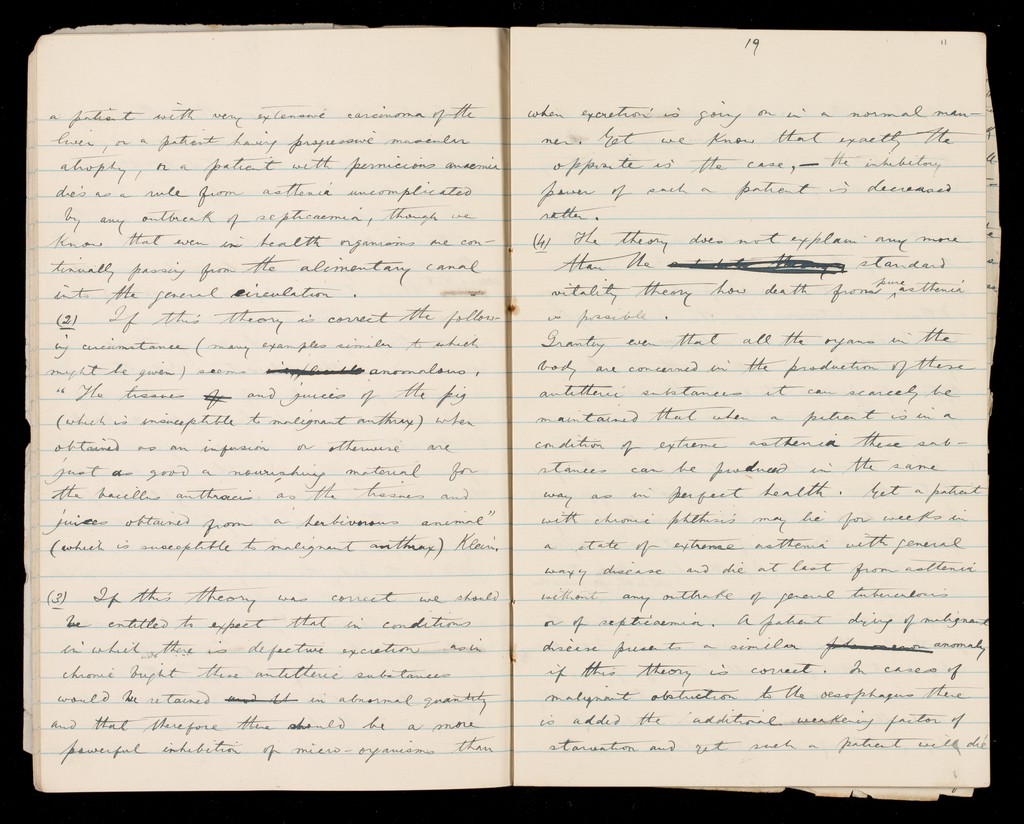 a patient with very extensive carcinoma of the
liver, or a patient having progressive muscular
atrophy, or a patient with pernicious anaemia
dies as a rule from asthenia uncomplicated
by any outbreak of septicaemia, though we
know that even in health organisms are con-
tinually passing from the alimentary canal
into the general circulation.
(2) If this theory is correct the follow-
ing circumstance (many examples similar to which
might be given) seems anomolous.
"The tissues of and juices of the pig
(which is insusceptible to malignant anthrax) when
obtained as an infusion or otherwise are
just as good a nourishing material for
the bacillus anthracis as the tissues and
juices obtained from a herbivorous animal"
(which is susceptible to malignant anthrax) Klein.
(3) If this theory was correct we should
be entitled to expect that in conditions
in which there is defective excretion as in
chronic bright these antitheric substances
would be retained and that in abnormal quantity
and that therefore there should be a more
powerful inhibition of micro-organisms than
19
11
when excretion is going on in a normal man-
ner. Yet we know that exactly the
opposite is the case, — the inhibitory
power of such a patient is decreased
rather.
(4) The theory does not explain any more
than the standard
vitality theory how death from pure asthenia
is possible.
Granting even that all the organs in the
body are concerned in the production of these
antitheric substances it can scarcely be
maintained that when a patient is in a
condition of extreme asthenia these sub-
stances can be produced in the same
way as in perfect health. Yet a patient
with chronic phthisis may lie for weeks in
a state of extreme asthenia with general
waxy disease and die at last from asthenia
without any outbrake of general tuberculosis
or of septicaemia. A patient dying of malignant
disease presents a similar phenomenon anomaly
if this theory is correct. In cases of
malignant obstruction to the oesophagus there
is added the additional weakening factor of
starvation and yet such a patient will die